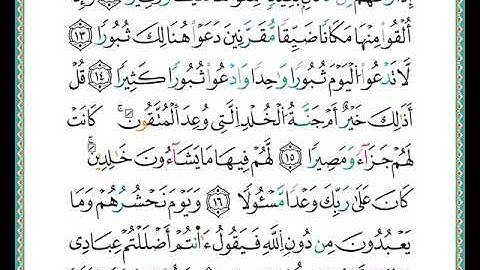 أُلْقُوا۟ مِنْهَا مَكَانًا ضَيِّقًا مُّقَرَّنِينَ دَعَوْا۟ هُنَالِكَ ثُبُورًا ١٣
لَّا تَدْعُوا۟ ٱلْيَوْمَ ثُبُورًا وَٰحِدًا وَٱدْعُوا۟ ثُبُورًا كَثِيرًا ١٤ قُلْ
أَذَٰلِكَ خَيْرٌ أَمْ جَنَّةُ ٱلْخُلْدِ ٱلَّتِى وُعِدَ ٱلْمُتَّقُونَ ۚ كَانَتْ
لَهُمْ جَزَآءً وَمَصِيرًا ١٥ لَّهُمْ فِيهَا مَا يَشَآءُونَ خَٰلِدِينَ ۚ
كَانَ عَلَىٰ رَبِّكَ وَعْدًا مَّسْـُٔولًا ١٦ وَيَوْمَ نَحْشُرُهُمْ وَمَا
يَعْبُدُونَ مِن دُونِ ٱللَّهِ فَيَقُولُ ءَأَنتُمْ أَضْلَلْتُمْ عِبَادِى